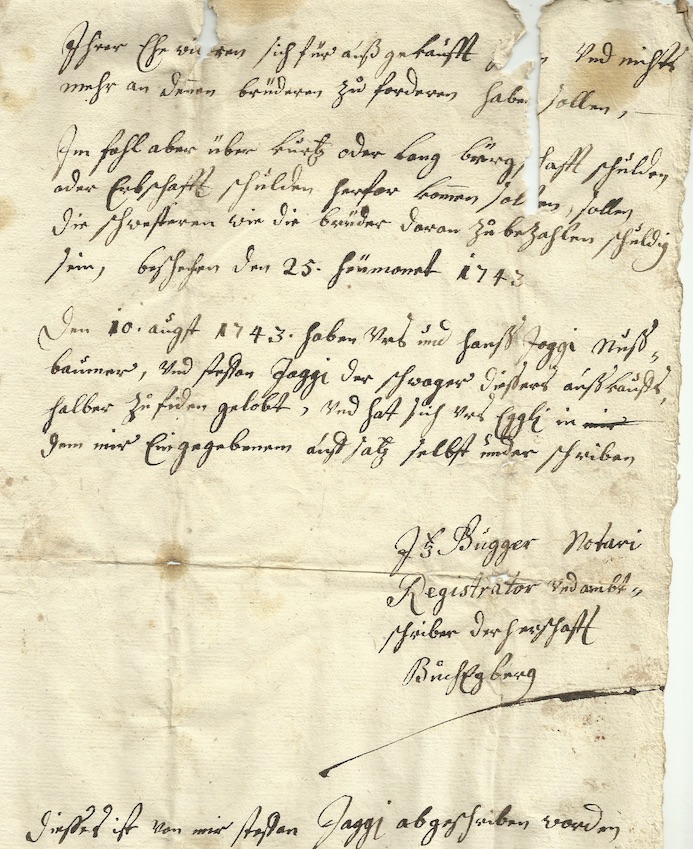 Ihrer Ehe wieren sich für auß gekaufft Und nichts
mehr an denen brüederen zu forderen haben sollen,
Im fahl aber über kurtz oder lang bürgschafft schulden
oder Erbschafft schulden herfor kommen solten, sollen
die schwesteren wie die brüder daran zu bezahlen schuldig
sein, beschechen den 25. heümonet 1743
Den 10. augst 1743. haben Urs und hanß Joggi Nuß=
baumer, Und steffan Jaggi der schwager diessers außkauffs
halber zu friden gelobt, Und hat sich Urs Eggli in mir
dem mir Eingegebenem auffsatz selbst under schriben
Bugger Notari
Registrator Und ambt=
schriber der herschafft
BuchEgberg
diesses ist von mir steffan Jaggi abgeschriben worden